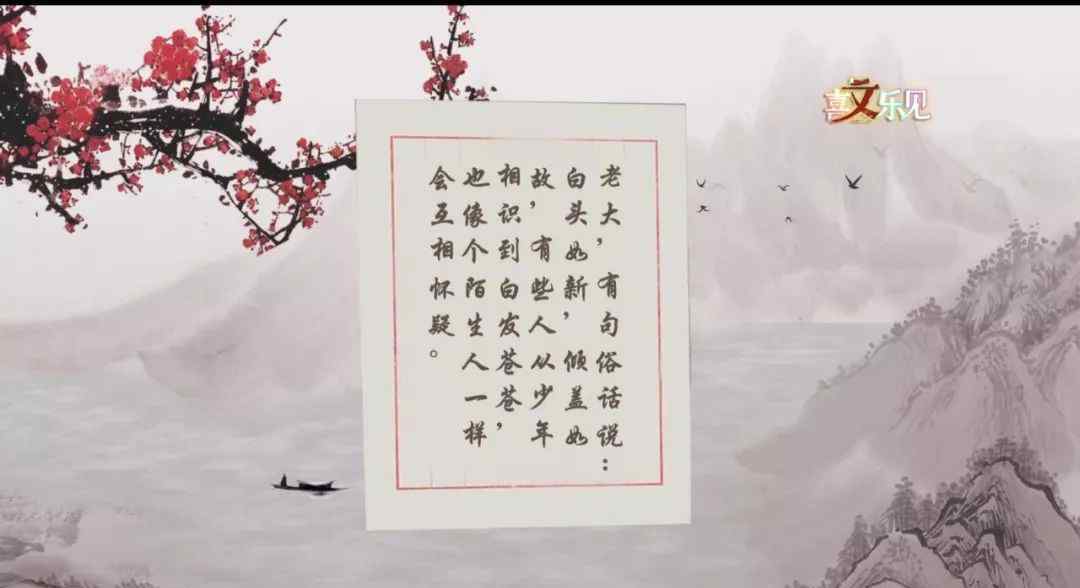 喜文乐见
老大，有句俗话说：
白头如新，倾盖如
故，有些人从少年
相识到白发苍苍，
也像个陌生人一样
会互相怀疑。